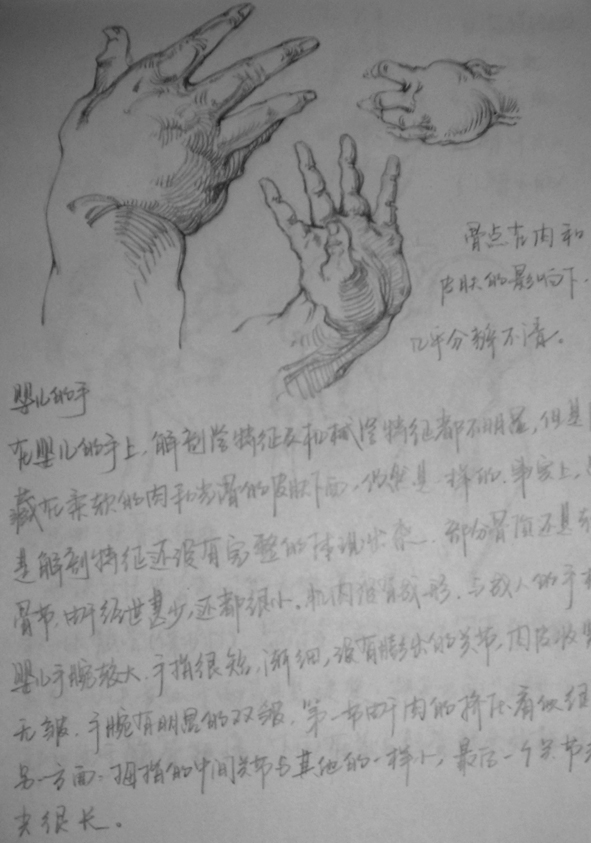 骨点在肉和
皮肤的影响下.
几乎分辨不清。
婴儿的手
在婴儿的手上,解剖学特征及机械学特征都不明显,但是
藏在柔软的肉和光滑的皮肤下面,仍然是一样的.事实上,
是解剖特征还没有完整的体现出来.部分骨质还是
骨节.由于经世甚少,还都很小.肌肉没有成形.与成人的手
婴儿手腕较大.手指很短,渐细,没有膨出的关节,肉
无皱.手腕有明显的双皱.第一节由于肉的挤压看似
另一方面.拇指的中间关节与其他的一样小,最后一个关节
去很长。